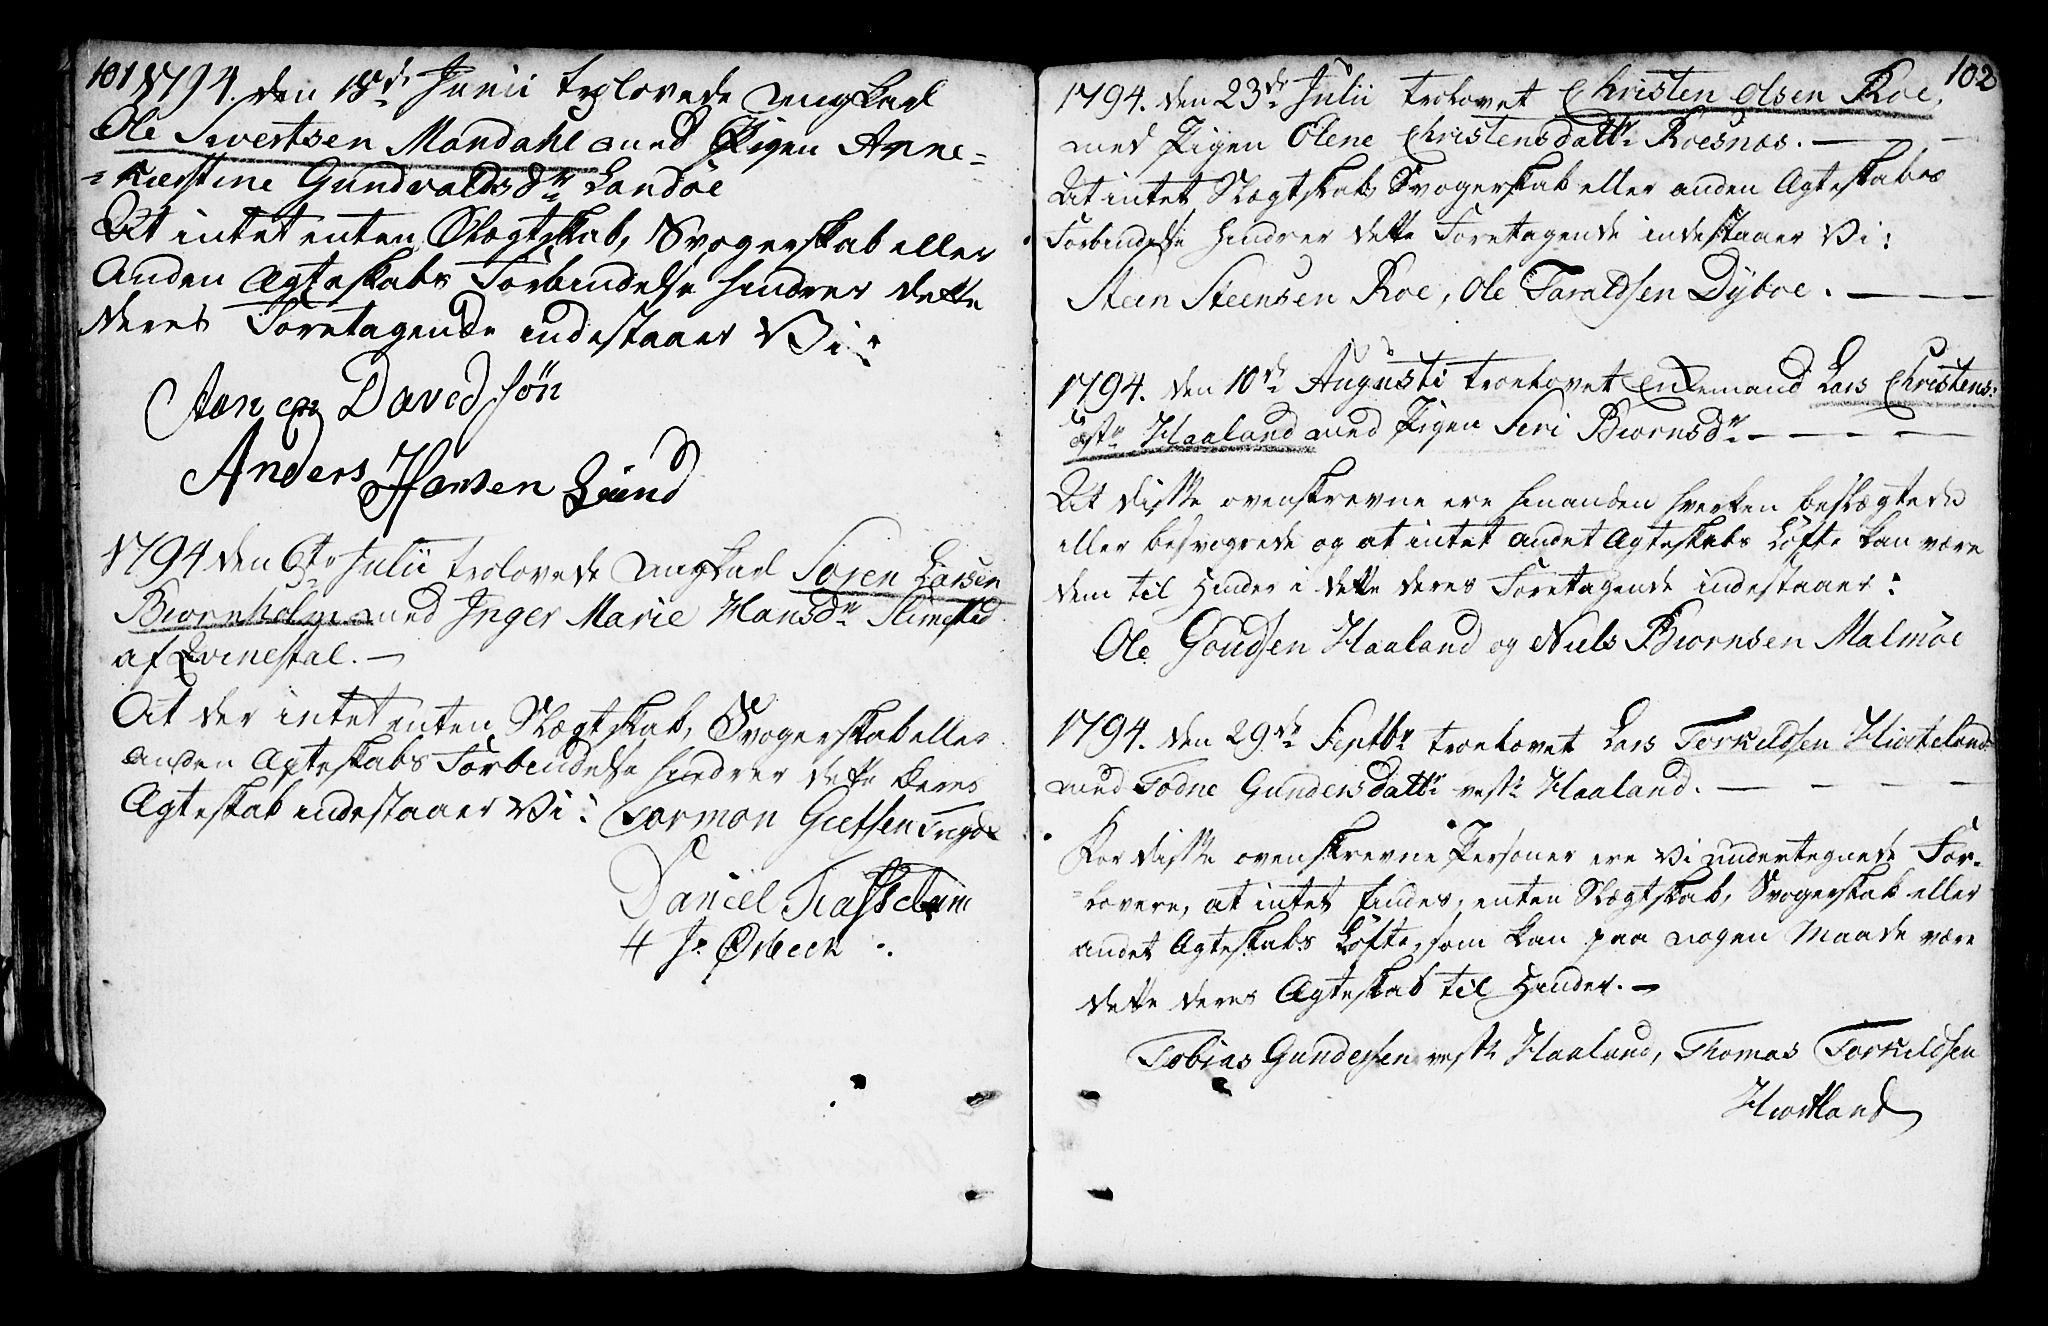 101
1794. den 18de Junii trolovede ungkarl
Ole Sivertsen Mandahl med Pigen Anne=
=Kirstine Gundvaldsdr Landøe
At intet enten Slægtskab, Svogerskab eller
Anden Ægteskabs Forbindelse hindrer dette
deres Foretagende indestaaer Vi:
Davedsøn
Anders Hansen Lund
1794 den 6te Julii trolovede ungkarl Søren Larsen
Biornholm med Inger Marie Hansdr
af Qvinesdal. —
At der intet enten Slægtskab, Svogerskab eller
anden Ægteskabs Forbindelse hindrer dette deres
Ægteskab indestaaer Vi: Tormon
Daniel
102
1794. den 23de Julii trolovet Christen Olsen Roe,
med Pigen Olene Christensdattr Roesnæs. —
At intet Slægtskab Svogerskab eller anden Ægteskabs
Forbindelse hindrer dette Foretagende indestaaer Vi:
Steen Steensen Roe, Ole Taraldsen Dyboe. —
1794. den 10de Augusti troelovet Enkemand Lars Christens:
østr Haaland med Pigen Siri Biørnsdr —
At disse ovenskrevne ere hinanden hverken beslægtede
eller besvogrede og at intet andet Ægteskabs Løfte kan være
dem til Hinder i dette deres Foretagende indestaaer:
Ole Goudsen Haaland og Niels Biornsen Malmøe
1794. den 29de Septbr troelovet Lars Torkildsen Hiorteland
med Todne Gundersdattr vestr Haaland. —
For disse ovenskrevne Personer ere Vi undertegnede For-
=lovere, at intet findes, enten Slægtskab, Svogerskab eller
andet Ægteskabs Løfte, som kan paa nogen Maade være
dette deres Ægteskab til Hinder. —
Tobias Gundersen vestr Haaland, Thomas Torkildsen
Hiortland